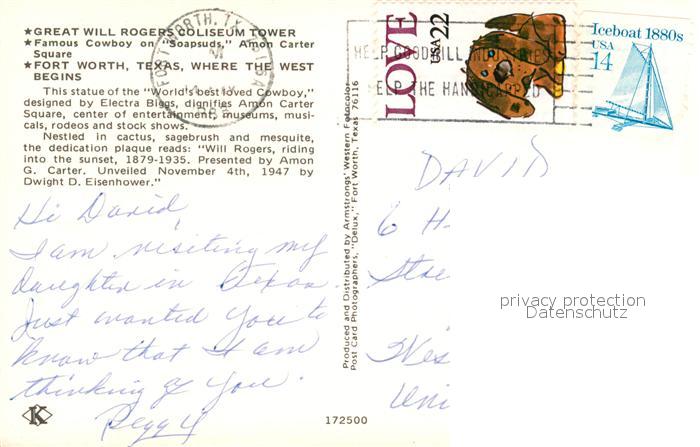 ★GREAT WILL ROGERS COLISEUM TOWER
★Famous Cowboy on "Soapsuds," Amon Carter
Square
★FORT WORTH, TEXAS, WHERE THE WEST
BEGINS
This statue of the "World's best loved Cowboy,"
designed by Electra Biggs, dignifies Amon Carter
Square, center of entertainment, museums, musi-
cals, rodeos and stock shows.
Nestled in cactus, sagebrush and mesquite,
the dedication plaque reads: "Will Rogers, riding
into the sunset, 1879-1935. Presented by Amon
G. Carter. Unveiled November 4th, 1947 by
Dwight D. Eisenhower."
Hi David,
I am visiting my
daughter in Texas.
Just wanted you to
know that I am
thinking of you.
Peggy
K
172500
Produced and Distributed by Armstrongs' Western Fotocolor
Post Card Photographers, "Delux," Fort Worth, Texas 76116
FORT WORTH, TX
PM
HELP GOODWILL INDUSTRIES
HELP THE HANDICAPPED
LOVE
USA 22
Iceboat 1880s
USA
14
DAVID
6 H
Stre
Wes
Uni
privacy protection
Datenschutz